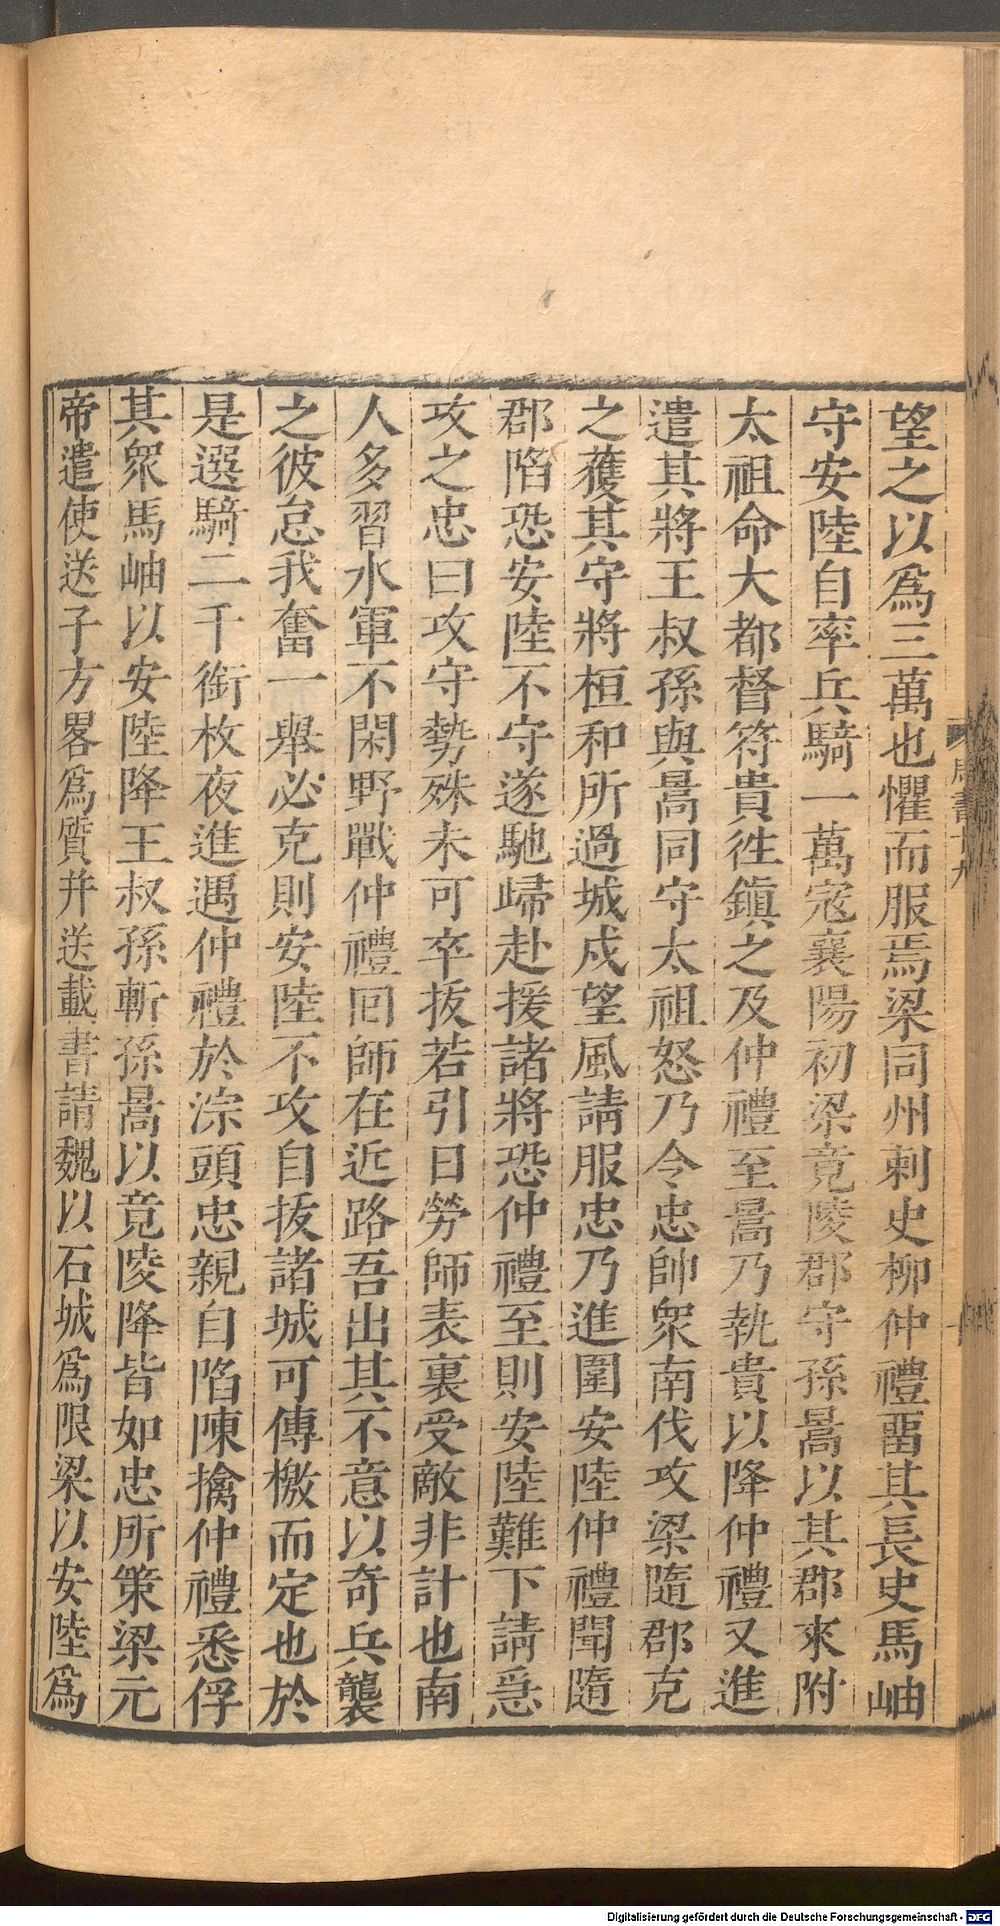 望之以爲三萬也懼而服焉梁同州刺史柳仲禮畱其長史馬岫
守安陸自率兵騎一萬寇襄陽初梁竟陵郡守孫暠以其郡來附
太祖命大都督符貴徃鎮之及仲禮至暠乃執貴以降仲禮又進
遣其將王叔孫與暠同守太祖怒乃令忠帥衆南伐攻梁隨郡克
之獲其守將桓和所過城戍望風請服忠乃進圍安陸仲禮聞隨
郡陷恐安陸不守遂馳歸赴援諸將恐仲禮至則安陸難下請急
攻之忠曰攻守勢殊未可卒拔若引日勞師表裏受敵非計也南
人多習水軍不閑野戰仲禮回師在近路吾出其不意以奇兵襲
之彼怠我奮一舉必克則安陸不攻自拔諸城可傳檄而定也於
是選騎二千銜枚夜進遇仲禮於淙頭忠親自陷陳擒仲禮悉俘
其衆馬岫以安陸降王叔孫斬孫暠以竟陵降皆如忠所策梁元
帝遣使送子方畧爲質并送載書請魏以石城爲限梁以安陸爲
周書十九
Digitalisierung gefördert durch die Deutsche Forschungsgemeinschaft - DFG